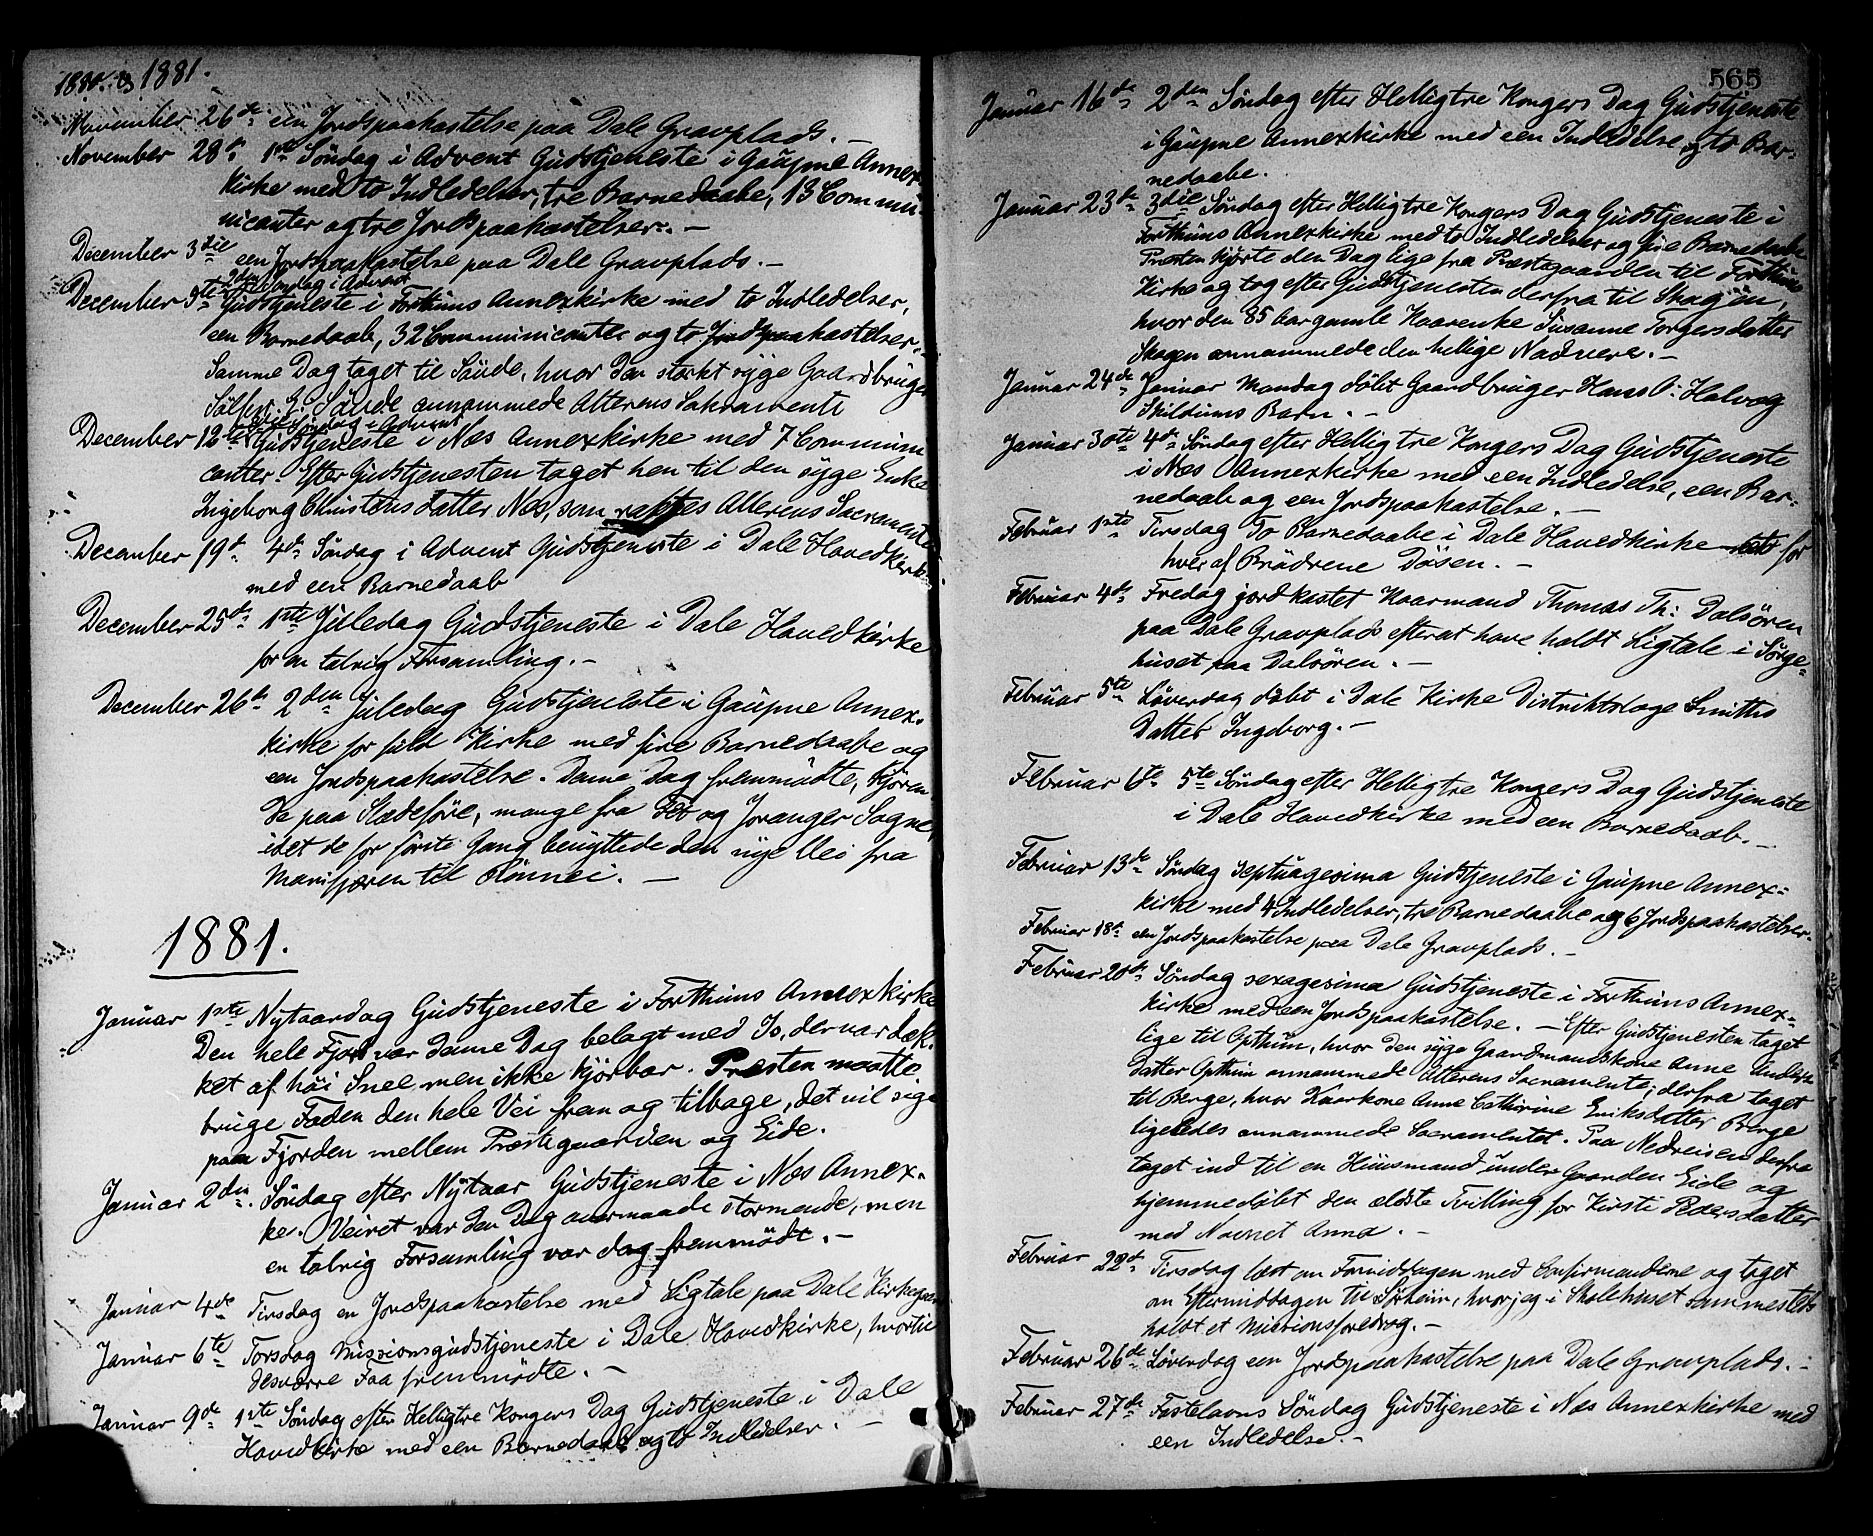 1880 og 1881.
November 26de een Jordspaakastelse paa Dale Gravplads. –
November 28de 1ste Søndag i Advent Gudstjeneste i Gaupne Annex-
kirke med to Indledelser, tre Barnedaabe, 13 Commu-
nicanter og tre Jordspaakastelser. –
December 3die een Jordspaakastelse paa Dale Gravplads. –
2den Søndag i Advent
December 5te Gudstjeneste i Forthuns Annexkirke med to Indledelser,
een Barnedaab, 32 Communicanter og to Jordspaakastelser. –
Samme Dag taget til Sünde, hvor den stærkt syge Gaardbruger
Sølfest E. Sünde annammede Alterens Sakramente
3die Søndag i Advent
December 12te Gudstjeneste i Næs Annexkirke med 7 Communi-
canter. Efter Gudstjenesten taget hen til den syge Enke
Ingeborg Christensdatter Næs, som raktes Alterens Sacramente
December 19de 4de Søndag i Advent Gudstjeneste i Dale Hovedkirke
med een Barnedaab
December 25de 1ste Juledag Gudstjeneste i Dale Hovedkirke
for en talrig Forsamling. –
December 26de 2den Juledag Gudstjeneste i Gaupne Annex-
kirke for fuld Kirke med fire Barnedaabe og
een Jordspaakastelse. Denne Dag fremmødte, kjøren-
de paa Slædeføre, mange fra Fet og Joranger Sogne,
idet de for første Gang benyttede den nye Vei fra
Marifjæren til Rønnei. –
1881.
Januar 1ste Nytaarsdag Gudstjeneste i Forthuns Annexkirke
Den hele Fjord var denne Dag belagt med Is, der var dæk-
ket af høi Snee men ikke kjørbar. Præsten maatte
bruge Foden den hele Vei frem og tilbage, det vil sige
paa Fjorden mellem Præstegaarden og Eide.
Januar 2den Søndag efter Nytaar Gudstjeneste i Næs Annex-
ke. Veiret var den Dag overmaade stormende, men
en talrig Forsamling var dog fremmødt. –
Januar 4de Tirsdag en Jordspaakastelse med Ligtale paa Dale Kirkegaard
Januar 6te Torsdag Missionsgudstjeneste i Dale Hovedkirke, hvortil
desværre Faa fremmødte. –
Januar 9de 1ste Søndag efter Helligtre Kongers Dag Gudstjeneste i Dale
Hovedkirke med een Barnedaab og to Indledelser. –
565
Januar 16de 2den Søndag efter Helligtre Kongers Dag Gudstjeneste
i Gaupne Annexkirke med een Indledelse og to Bar-
nedaabe.
Januar 23de 3die Søndag efter Helligtre Kongers Dag Gudstjeneste i
Forthuns Annexkirke med to Indledelser og fire Barnedaabe
Præsten kjørte den Dag lige fra Præstegaarden til Forthuns
Kirke og tog efter Gudstjenesten derfra til Skagen,
hvor den 85 Aar gamle Kaarenke Susanne Torgersdatter
Skagen annammede den hellige Nadvere. –
Januar 24de Januar Mandag døbt Gaardbruger Hans O: Halvog
Skildums Barn. –
Januar 30te 4de Søndag efter Hellig tre Kongers Dag Gudstjeneste
i Næs Annexkirke med een Indledelse, een Bar-
nedaab og een Jordspaakastelse. –
Februar 1ste Tirsdag To Barnedaabe i Dale Hovedkirke for
hver af Brødrene Døsen. –
Februar 4de Fredag jordkastet Kaarmand Thomas Th: Dalsøren
paa Dale Gravplads efterat have holdt Ligtale i Sørge-
huset paa Dalsøren. –
Februar 5te Løverdag døbt i Dale Kirke Distriktslæge Smiths
Datter Ingeborg. –
Februar 6te 5te Søndag efter Helligtre Kongers Dag Gudstjeneste
i Dale Hovedkirke med een Barnedaab. –
Februar 13de Søndag Septuagesima Gudstjeneste i Gaupne Annex-
kirke med 4 Indledelser, tre Barnedaabe og 6 Jordspaakastelser.
Februar 18de een Jordspaakastelse paa Dale Gravplads. –
Februar 20de Søndag sexagesima Gudstjeneste i Forthuns Annex-
kirke med een Jordspaakastelse. – Efter Gudstjenesten taget
lige til Opthun, hvor den syge Gaardmandskone Anne Anders-
datter Opthun annammede Alterens Sacramente; derfra taget
til Berge, hvor Kaarkone Anne Cathrine Eriksdatter Berge
ligeledes annammede Sacramentet. Paa Nedreisen derfra
taget ind til en Huusmand under Gaarden Eide og
hjemmedøbt den ældste Tvilling for Kirsti Pedersdatter
med Navnet Anna. –
Februar 22de Tirsdag læst om Formiddagen med Confirmanderne og taget
om Eftermiddagen til, hvor jeg i Skolehuset sammesteds
holdt et Missionsforedrag. –
Februar 26de Løverdag een Jordspaakastelse paa Dale Gravplads. –
Februar 27de Fastelavns Søndag Gudstjeneste i Næs Annexkirke med
een Indledelse. –